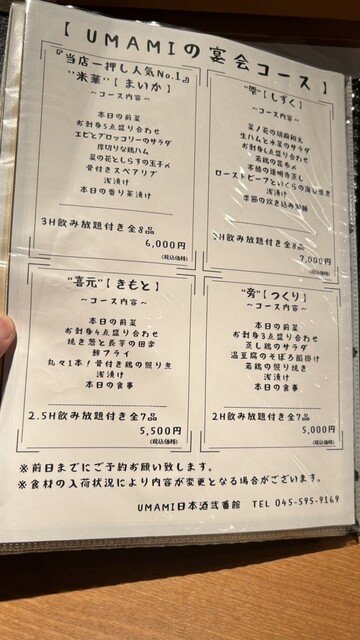 【 UMAMIの宴会コース 】
『当店一押し人気No.1』
"米華"【まいか】
~コース内容~
本日の前菜
お刺身5点盛り合わせ
エビとブロッコリーのサラダ
厚切りな鶏ハム
菜の花としらすの玉子〆
骨付きスペアリブ
浅漬け
本日の香り茶漬け
3H飲み放題付き全8品
6,000円
(税込価格)
"雫"【しずく】
~コース内容~
菜ノ花の胡麻和え
生ハムと水菜のサラダ
お刺身6点盛り合わせ
若鶏の昆布〆
本格の道明寺蒸し
ローストビーフといくらの
浅漬け
季節の炊き込み
3H飲み放題付き全8品
7,000円
(税込価格)
"喜元"【きもと】
~コース内容~
本日の前菜
お刺身4点盛り合わせ
焼き葱と長芋の田楽
鯵フライ
丸々1本!骨付き鶏の照り煮
浅漬け
本日の食事
2.5H飲み放題付き全7品
5,500円
(税込価格)
"旁"【つくり】
~コース内容~
本日の前菜
お刺身3点盛り合わせ
蒸し鶏のサラダ
温豆腐のそぼろ餡掛け
若鶏の照り焼き
浅漬け
本日の食事
2H飲み放題付き全7品
5,000円
(税込価格)
※前日までにご予約お願い致します。
※食材の入荷状況により内容が変更となる場合がございます。
UMAMI日本酒弐番館 TEL 045-595-9169